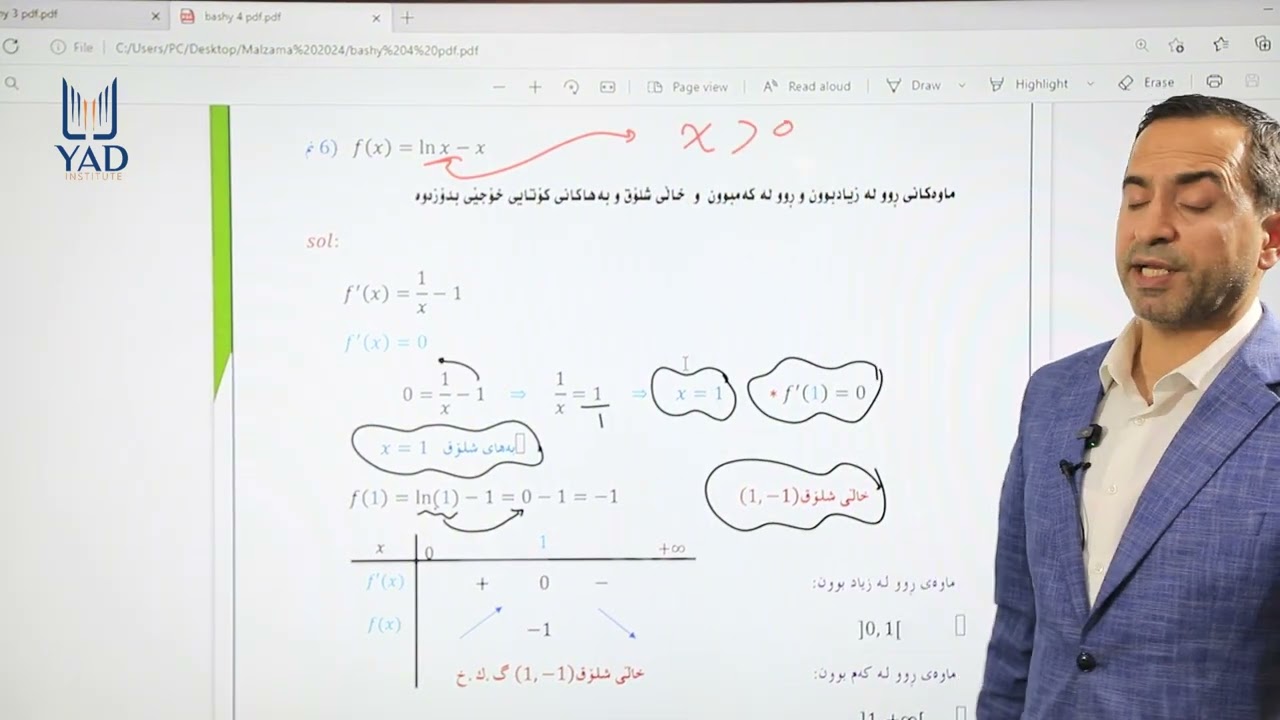 y 3 pdf.pdf
bashy 4 pdf.pdf
File C:/Users/PC/Desktop/Malzama%202024/bashy%204%20pdf.pdf
Page view
Read aloud
Draw
Highlight
Erase
YAD
INSTITUTE
6) f(x) = ln x − x
x > 0
ماوەکانی ڕوو لە زیادبوون و ڕوو لە کەمبوون و خاڵی شلۆق و بەهاکانی کۆتایی خۆجێی بدۆزەوە
sol:
f′(x) = 1/x − 1
f′(x) = 0
0 = 1/x − 1 ⇒ 1/x = 1 ⇒ x = 1 * f′(1) = 0
1
x = 1 بەهای شلۆق
f(1) = ln(1) − 1 = 0 − 1 = −1
خاڵی شلۆق(1, −1)
x 0 1 +∞
f′(x) + 0 −
f(x) −1
خاڵی شلۆق(1, −1) گ.ك.خ
ماوەی ڕوو لە زیاد بوون:
]0, 1[
ماوەی ڕوو لە کەم بوون:
]1, +∞[